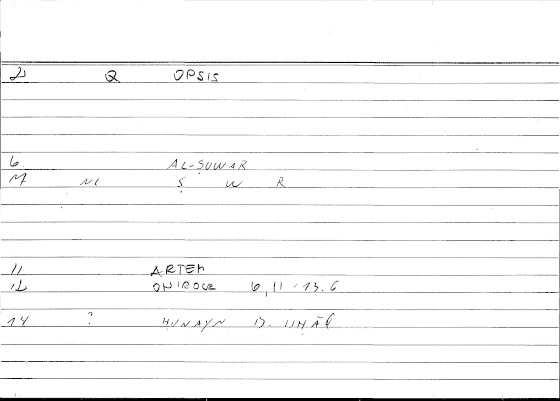 2 Q OPSIS
6 AL-ṢUWAR
M NL Ṣ W R
11 ARTEM
12 ONIROCR 6,11-13.6
14 ? ḤUNAYN B. ISḤĀQ